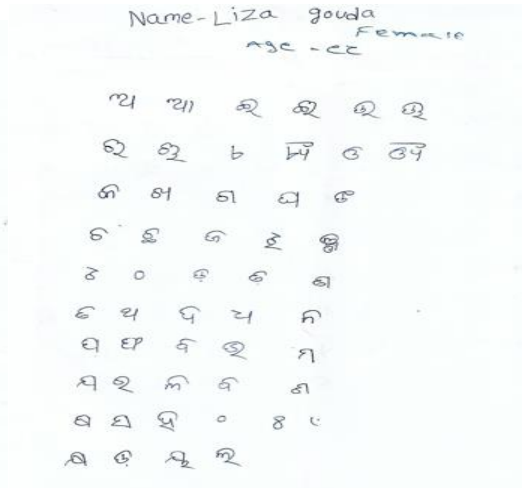 Name-Liza gouda
Female
Age -
ଅ ଆ ଇ ଈ ଉ ଊ
ଋ ୠ ଏ ଐ ଓ ଔ
କ ଖ ଗ ଘ ଙ
ଚ ଛ ଜ ଝ ଞ
ଟ ଠ ଡ ଢ ଣ
ତ ଥ ଦ ଧ ନ
ପ ଫ ବ ଭ ମ
ଯ ର ଳ ବ ଶ
ଷ ସ ହ ଂ ଃ ଁ
କ୍ଷ ଡ଼ ୟ ଲ